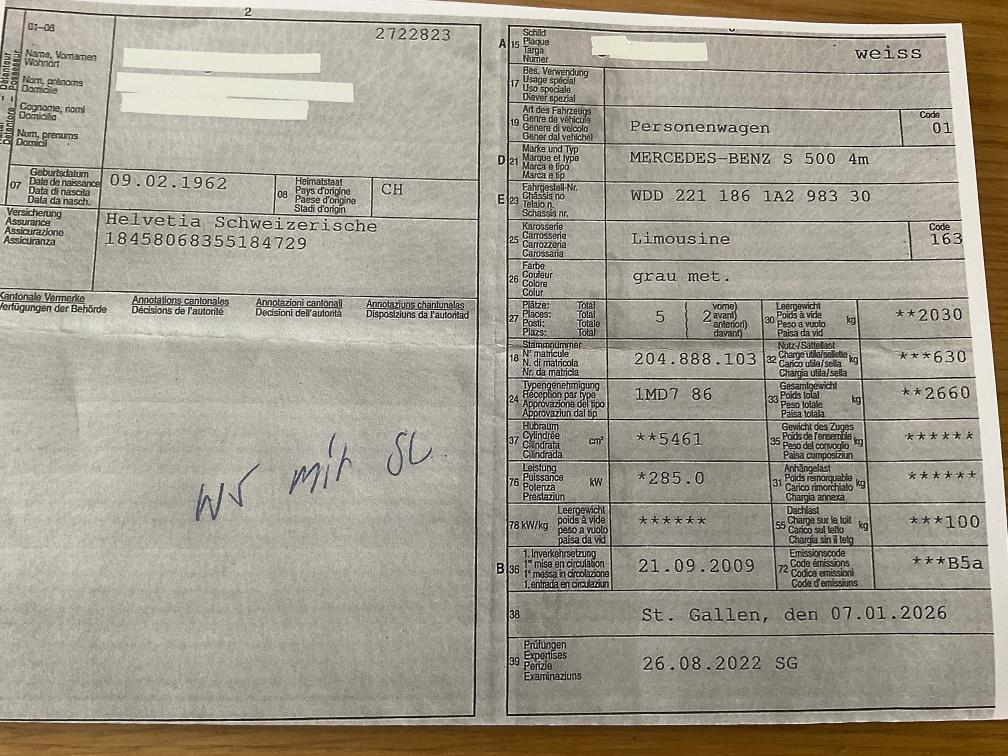 2
01-06
2722823
Name, Vornamen
Wohnort
Nom, prénoms
Domicile
Cognome, nomi
Domicilio
Num, prenums
Domicil
07
Geburtsdatum
Date de naissance
Data di nascita
Data da nasch.
09.02.1962
08
Heimatstaat
Pays d'origine
Paese d'origine
Stadi d'origin
CH
Versicherung
Assurance
Assicurazione
Assicuranza
Helvetia Schweizerische
18458068355184729
Kantonale Vermerke
Verfügungen der Behörde
Annotations cantonales
Décisions de l'autorité
Annotazioni cantonali
Decisioni dell'autorità
Annotaziuns chantunalas
Disposiziuns da l'autoritad
mit SL
A 15
Schild
Plaque
Targa
Numer
weiss
17
Bes. Verwendung
Usage spécial
Uso speciale
Diever spezial
19
Art des Fahrzeugs
Genre de véhicule
Genere di veicolo
Gener dal vehichel
Personenwagen
Code
01
D 21
Marke und Typ
Marque et type
Marca e tipo
Marca e tip
MERCEDES-BENZ S 500 4m
E 23
Fahrgestell-Nr.
Châssis no
Telaio n.
Schassis nr.
WDD 221 186 1A2 983 30
25
Karosserie
Carrosserie
Carrozzeria
Carossaria
Limousine
Code
163
26
Farbe
Couleur
Colore
Colur
grau met.
27
Plätze: Total
Places: Total
Posti: Totale
Plazs: Total
5
( 2
vorne)
avant)
anteriori)
davant)
30
Leergewicht
Poids à vide
Peso a vuoto
Paisa da vid
kg
**2030
18
Stammnummer
N° matricule
N. di matricola
Nr. da matricla
204.888.103
32
Nutz-/Sattellast
Charge utile/sellette
Carico utile/sella
Chargia utila/sella
kg
***630
24
Typengenehmigung
Réception par type
Approvazione del tipo
Approvaziun dal tip
1MD7 86
33
Gesamtgewicht
Poids total
Peso totale
Paisa totala
kg
**2660
37
Hubraum
Cylindrée
Cilindrata
Cilindrada
cm³
**5461
35
Gewicht des Zuges
Poids de l'ensemble
Peso del convoglio
Paisa cumposiziun
kg
******
76
Leistung
Puissance
Potenza
Prestaziun
kW
*285.0
31
Anhängelast
Poids remorquable
Carico rimorchiato
Chargia annexa
kg
******
78 kW/kg
Leergewicht
poids à vide
peso a vuoto
paisa da vid
******
55
Dachlast
Charge sur le toit
Carico sul tetto
Chargia sin il tetg
kg
***100
B 36
1. Inverkehrsetzung
1re mise en circulation
1a messa in circolazione
1. entrada en circulaziun
21.09.2009
72
Emissionscode
Code émissions
Codice emissioni
Code d'emissiuns
***B5a
38
St. Gallen, den 07.01.2026
39
Prüfungen
Expertises
Perizie
Examinaziuns
26.08.2022 SG